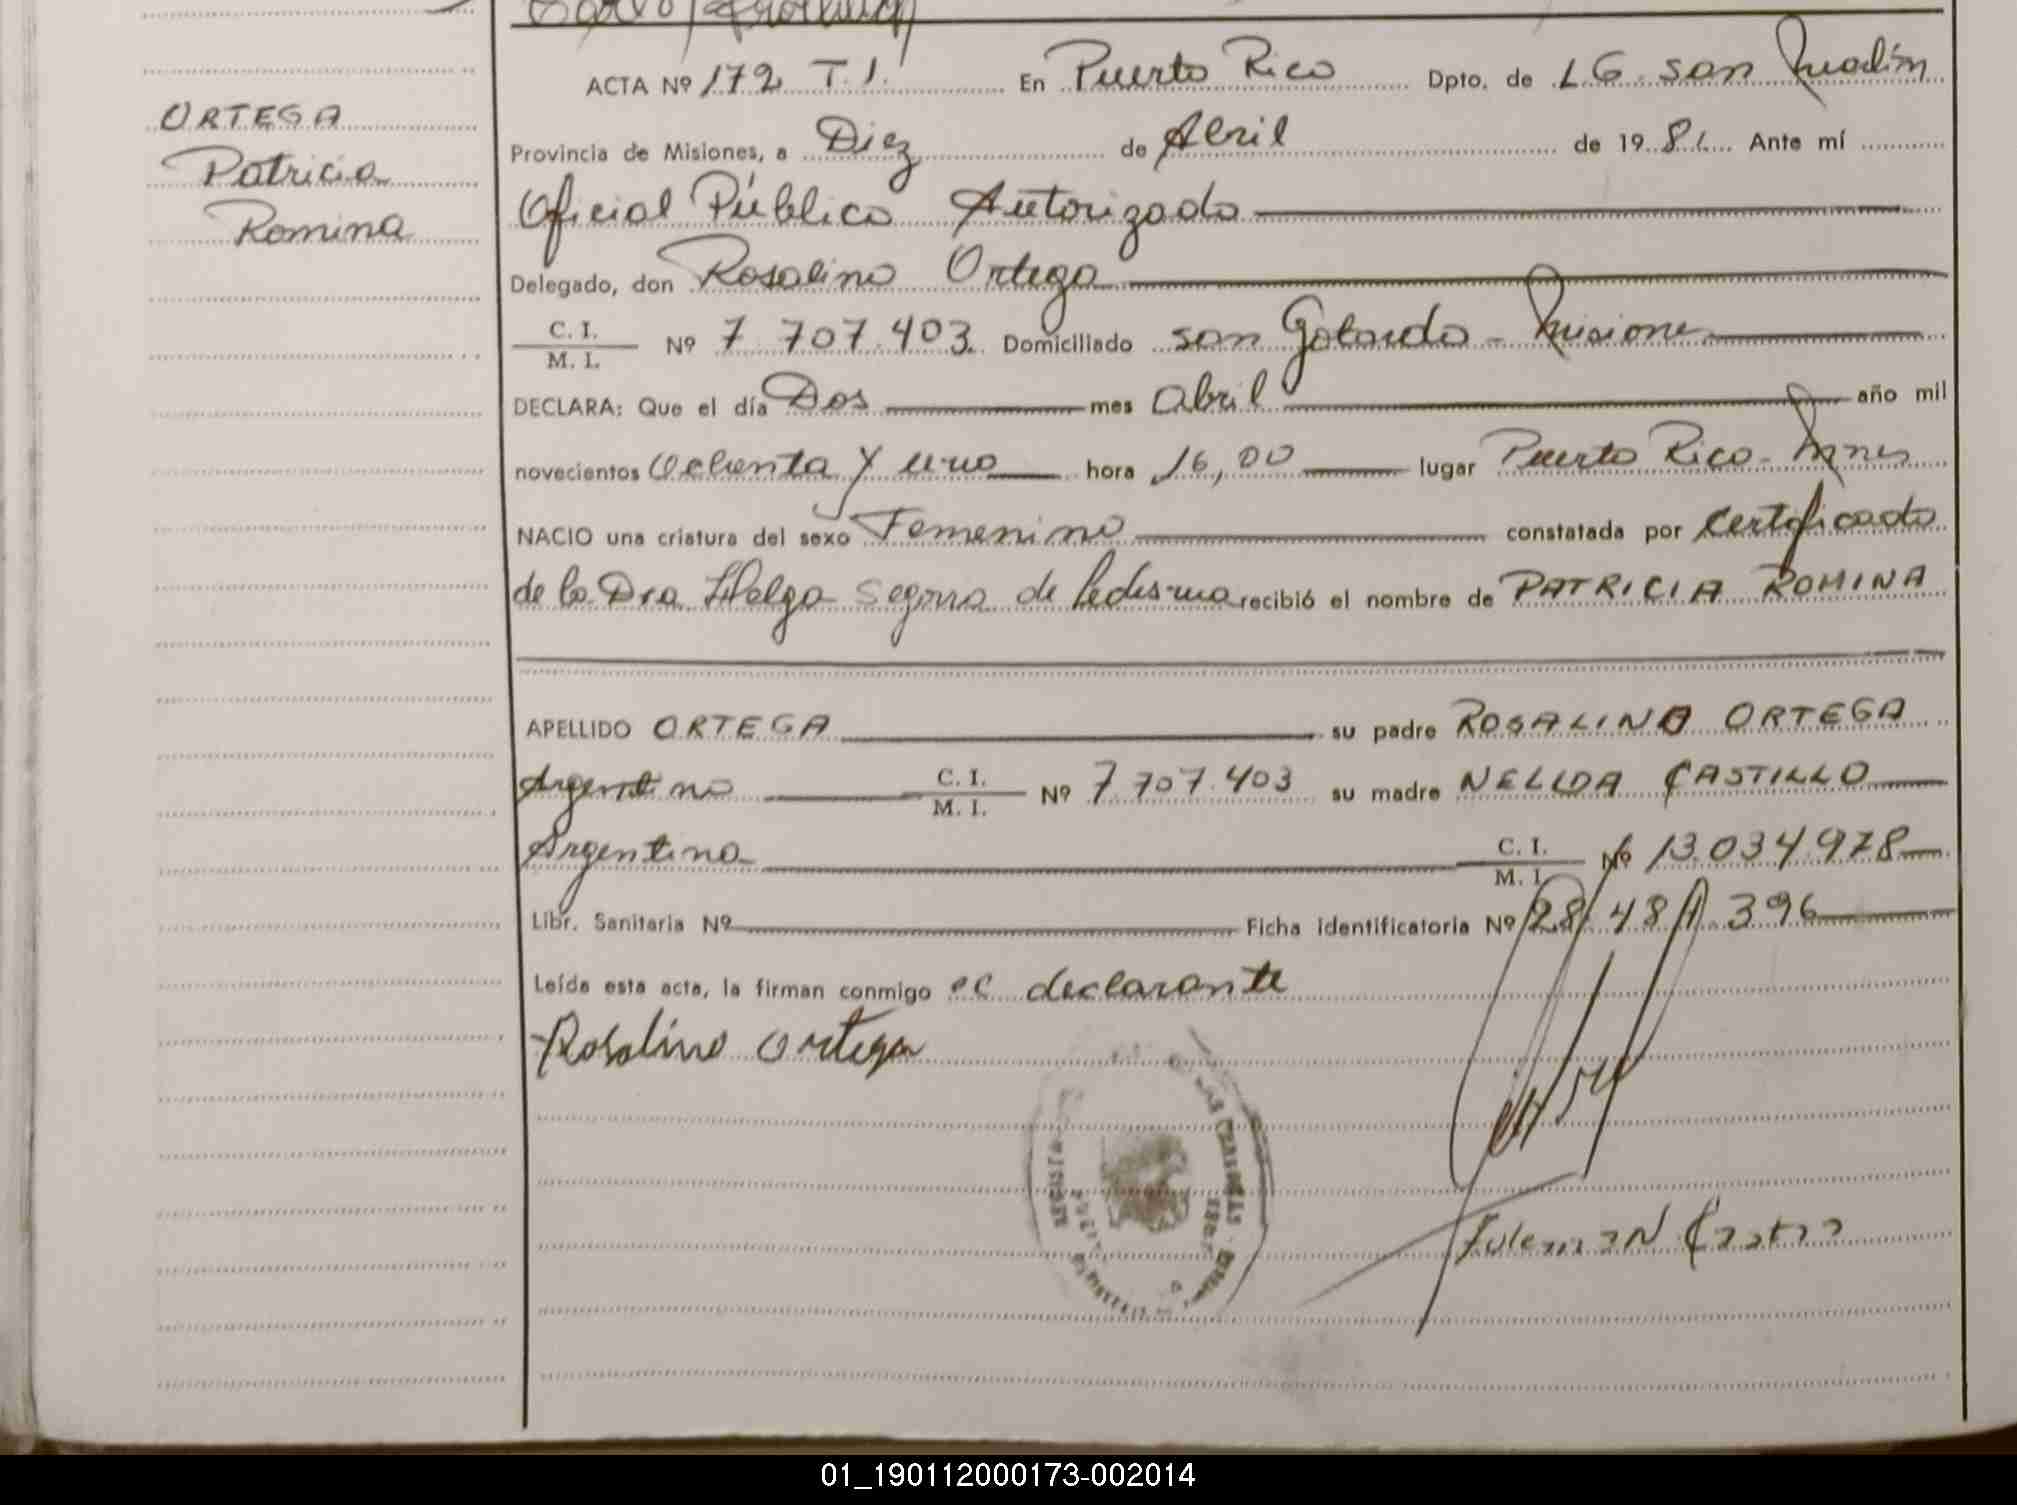 ACTA Nº 172 T. I. En Puerto Rico Dpto. de L G. San Martín
ORTEGA
Patricia
Romina
Provincia de Misiones, a Diez de Abril de 1981. Ante mí
Oficial Público Autorizado
Delegado, don Rosalino Ortega
C. I.
M. I. Nº 7.707.403. Domiciliado San Gotardo - Misiones
DECLARA: Que el día Dos mes Abril año mil
novecientos Ochenta y uno hora 16,00 lugar Puerto Rico - Mnes
NACIO una criatura del sexo Femenino constatada por Certificado
de la Dra Helga de Ledesma recibió el nombre de PATRICIA ROMINA
APELLIDO ORTEGA su padre ROSALINO ORTEGA
Argentino C. I. M. I. Nº 7.707.403 su madre NELIDA CASTILLO
Argentina C. I. M. I. Nº 13.034.978
Libr. Sanitaria Nº Ficha identificatoria Nº 28.481.396
Leída esta acta, la firman conmigo el declarante
Rosalino Ortega
01_190112000173-002014